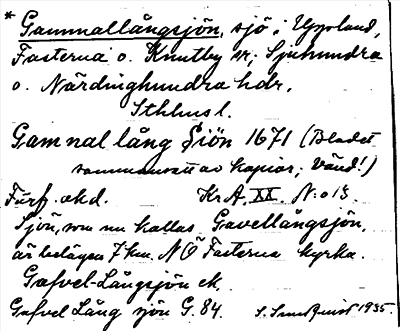 * Gammallångsjön, sjö i Uppland,
Fasterna o. Knutby sr; Sjuhundra
o. Närdinghundra hdr,
Sthlms l.
Gam nal lång Siön 1671 (Bladet
sammansatt av kopior; vänd!)
Förf. okd. Kr.A. XX. N:o 13.
Sjön, som nu kallas Gavellångsjön,
är belägen 7 km. NÖ Fasterna kyrka.
Gafvel-Långsjön ek.
Gafvel Lång sjön G. 84. 1935